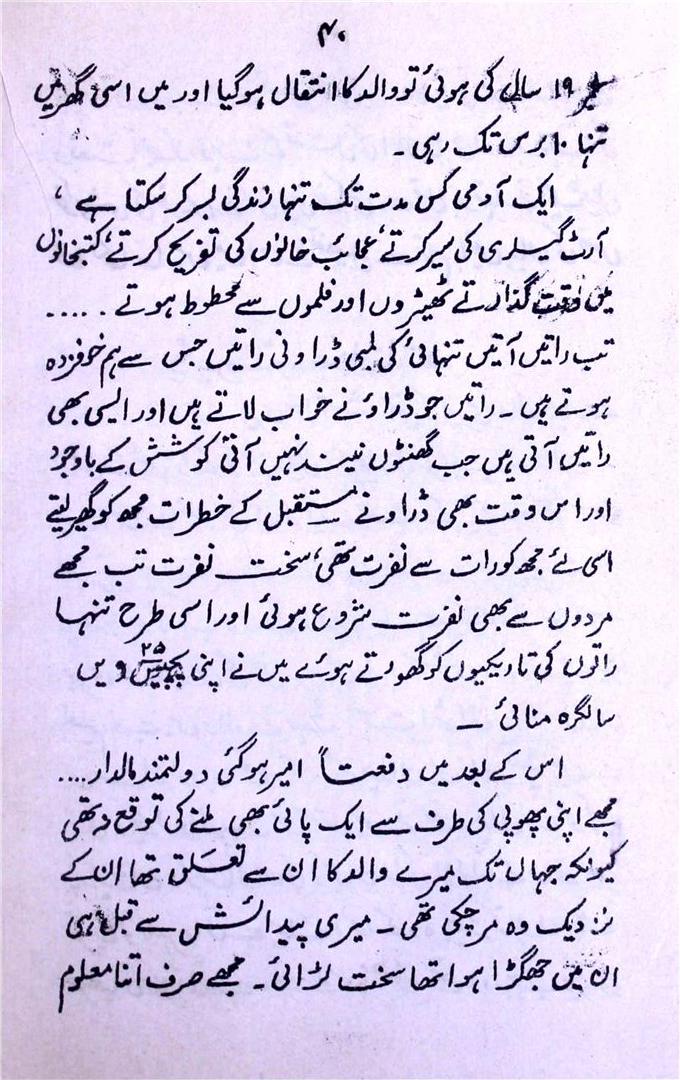 ۴۰
۱۹ سال کی ہوئی تو والد کا انتقال ہوگیا اور میں اسی گھر میں
تنہا ۱۰ برس تک رہی ۔
ایک آدمی کس مدت تک تنہا زندگی بسر کر سکتا ہے ،
آرٹ گیلری کی سیر کرتے، عجائب خانوں کی تفریح کرتے، کتبخانوں
میں وقت گذارتے تھیٹروں اور فلموں سے محظوظ ہوتے .....
تب راتیں آتیں تنہائی کی لمبی ڈراونی راتیں جس سے ہم خوفزدہ
ہوتے ہیں ۔ راتیں جو ڈراؤنے خواب لاتے ہیں اور ایسی بھی
راتیں آتی ہیں جب گھنٹوں نیند نہیں آتی کوشش کے باوجود
اور اس وقت بھی ڈراونے مستقبل کے خطرات مجھ کو گھیر لیتے
اسی لئے مجھ کو رات سے نفرت تھی، سخت نفرت تب مجھے
مردوں سے بھی نفرت شروع ہوئی اور اسی طرح تنہا
راتوں کی تاریکیوں کو گھورتے ہوئے میں نے اپنی ۲۵ ویں
سالگرہ منائی ۔
اس کے بعد میں دفعتاً امیر ہوگئی دولتمند مالدار ....
مجھے اپنی پھوپی کی طرف سے ایک پائی بھی ملنے کی توقع نہ تھی
کیونکہ جہاں تک میرے والد کا ان سے تعلق تھا ان کے
نزدیک وہ مرچکی تھی ۔ میری پیدائش سے قبل ہی
ان میں جھگڑا ہوا تھا سخت لڑائی ۔ مجھے صرف اتنا معلوم